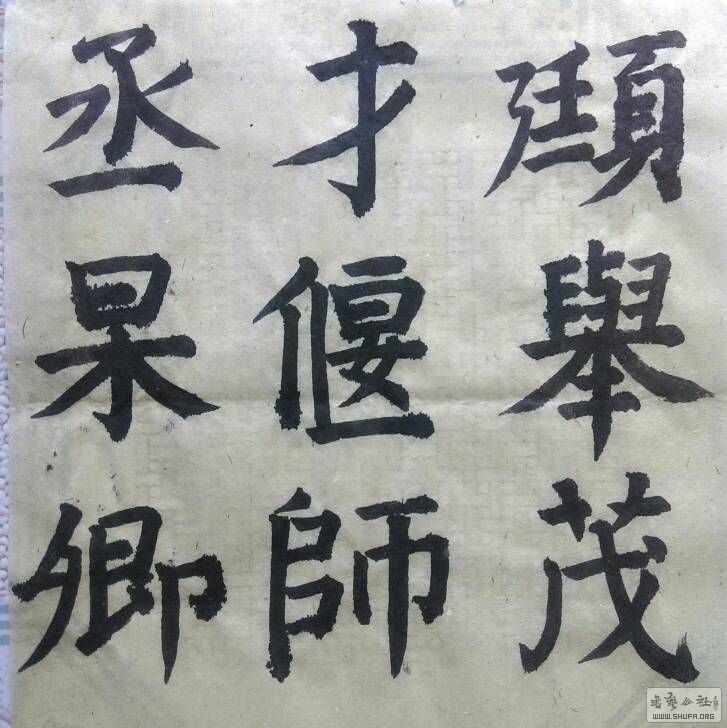 頲舉茂
才偃師
丞杲卿
書藝公社
WWW.SHUFA.ORG